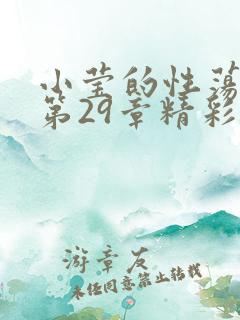 小莹的性荡
第29章精彩
游章友
未经同意禁止转载